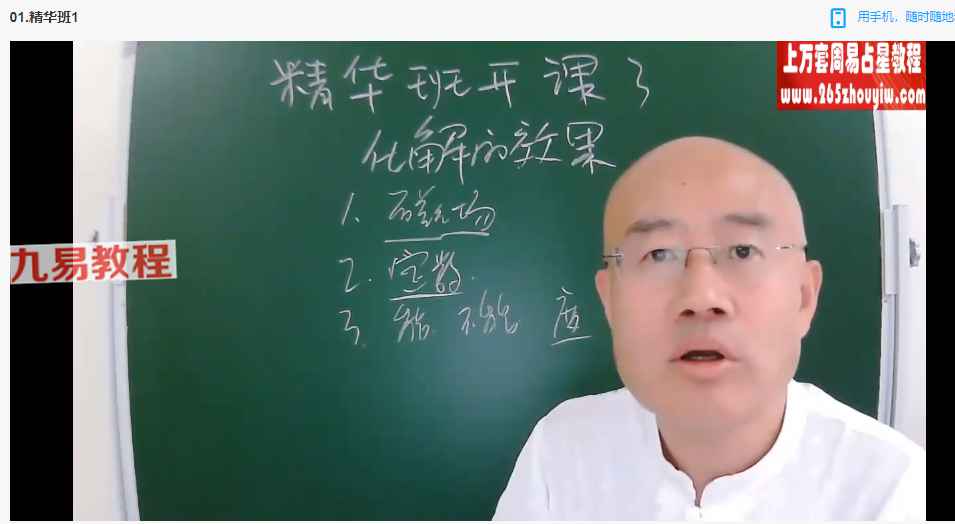 01.精华班1
用手机，随时随地
上万套周易占星教程
www.265zhouyiw.com
精华班开课了
化解的效果
1. 磁场
2. 定数
3. 能 不能 应
九易教程